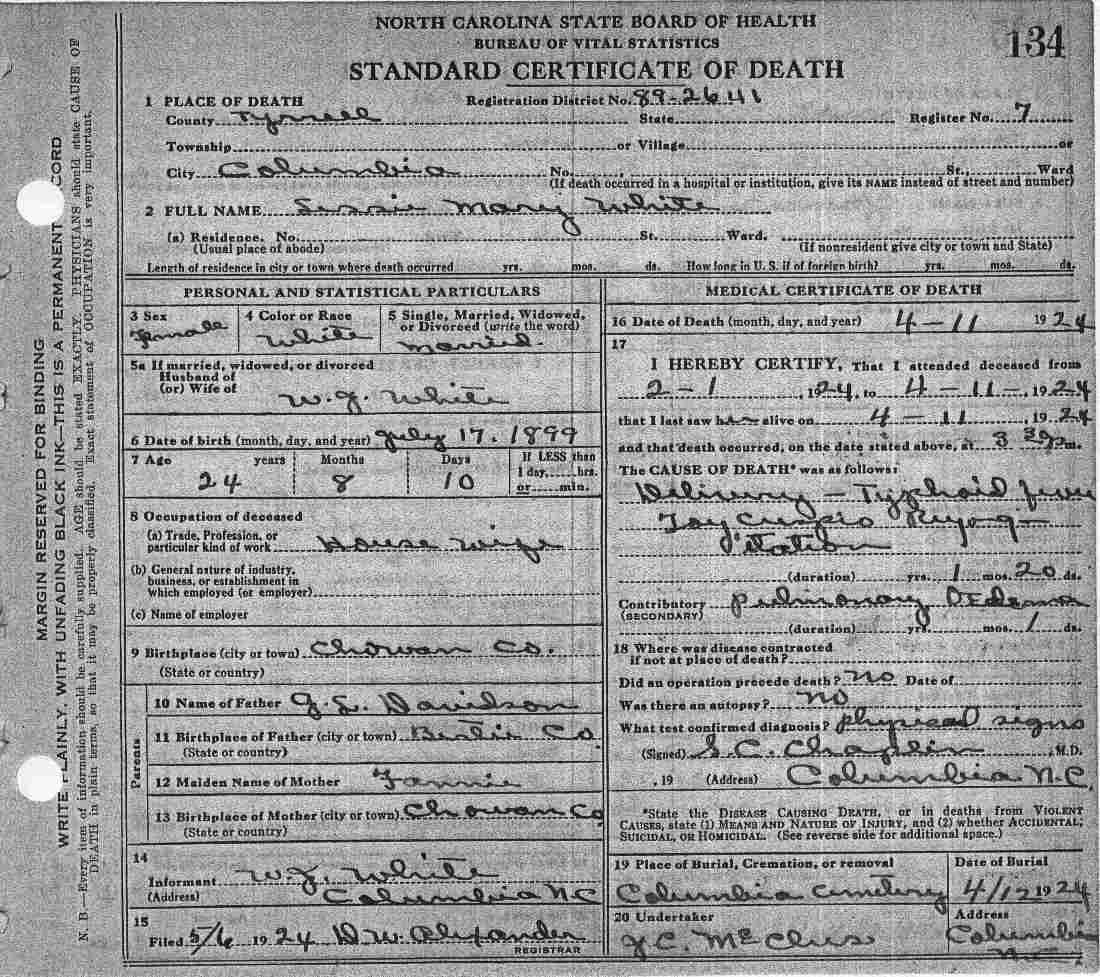 NORTH CAROLINA STATE BOARD OF HEALTH
BUREAU OF VITAL STATISTICS
134
STANDARD CERTIFICATE OF DEATH
1 PLACE OF DEATH Registration District No. 89-2641
County Tyrrell State Register No. 7
Township or Village or
City Columbia No. St., Ward
(If death occurred in a hospital or institution, give its NAME instead of street and number)
2 FULL NAME Mary White
(a) Residence. No. St. Ward.
(Usual place of abode) (If nonresident give city or town and State)
Length of residence in city or town where death occurred yrs. mos. ds. How long in U. S. if of foreign birth? yrs. mos. ds.
PERSONAL AND STATISTICAL PARTICULARS
3 Sex Female
4 Color or Race White
5 Single, Married, Widowed,
or Divorced (write the word)
Married.
5a If married, widowed, or divorced
Husband of
(or) Wife of W. J. White
6 Date of birth (month, day, and year) July 17. 1899
7 Age years Months Days If LESS than
1 day, hrs.
or min.
24 8 10
8 Occupation of deceased
(a) Trade, Profession, or
particular kind of work House wife
(b) General nature of industry,
business, or establishment in
which employed (or employer)
(c) Name of employer
9 Birthplace (city or town) Chowan Co.
(State or country)
Parents
10 Name of Father Davidson
11 Birthplace of Father (city or town) Bertie Co.
(State or country)
12 Maiden Name of Mother Fannie
13 Birthplace of Mother (city or town) Chowan Co
(State or country)
14
Informant W. J. White
(Address) Columbia NC
15
Filed 5/6 1924 D. W. Alexander
REGISTRAR
MEDICAL CERTIFICATE OF DEATH
16 Date of Death (month, day, and year) 4-11 1924
17
I HEREBY CERTIFY, That I attended deceased from
2-1, 1924, to 4-11-, 1924
that I last saw her alive on 4-11, 1924
and that death occurred, on the date stated above, at 3 30 pm.
The CAUSE OF DEATH* was as follows:
Delivery - Typhoid fever
(duration) yrs. 1 mos. 20 ds.
Contributory Pulmonary Oedema
(SECONDARY)
(duration) yrs. mos. 1 ds.
18 Where was disease contracted
if not at place of death?
Did an operation precede death? No Date of
Was there an autopsy? No
What test confirmed diagnosis? physical signs
(Signed) S. C. Chaplin, M.D.
, 19 (Address) Columbia N.C.
*State the DISEASE CAUSING DEATH, or in deaths from VIOLENT
CAUSES, state (1) MEANS AND NATURE OF INJURY, and (2) whether ACCIDENTAL,
SUICIDAL, OR HOMICIDAL. (See reverse side for additional space.)
19 Place of Burial, Cremation, or removal Date of Burial
Columbia Cemetery 4/12 1924
20 Undertaker Address
Columbia
N.C.
MARGIN RESERVED FOR BINDING
WRITE PLAINLY, WITH UNFADING BLACK INK—THIS IS A PERMANENT RECORD
N. B.—Every item of information should be carefully supplied. AGE should be stated EXACTLY. PHYSICIANS should state CAUSE OF
DEATH in plain terms, so that it may be properly classified. Exact statement of OCCUPATION is very important.